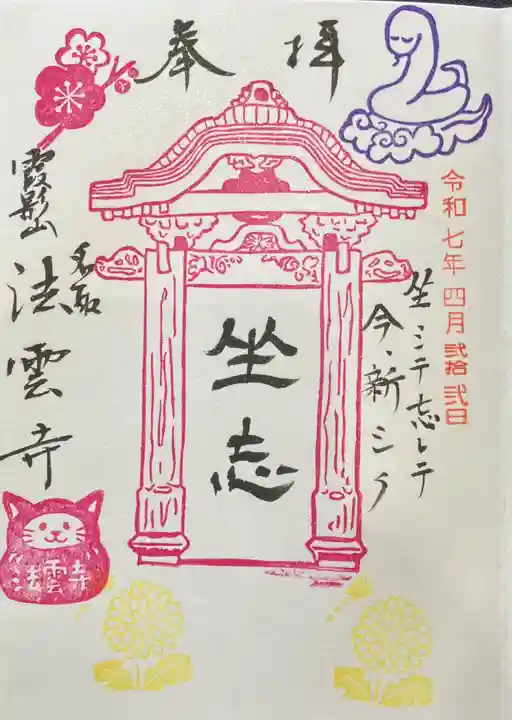 奉拝
令和七年 四月 弐拾弐日
坐シテ忘レテ
今、新シク
坐忘
霞影山
名取
法雲寺
法雲寺